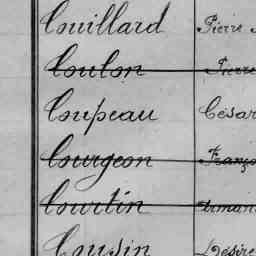 Couillard Pierre
Coulon Pierre
Coupeau César
Courgeon Franço
Courtin Arman
Cousin Désiré